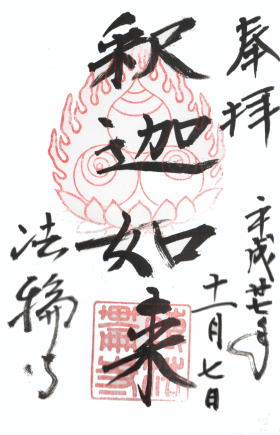 奉拝
平成廿七年
十一月七日
釈迦如来
法輪寺